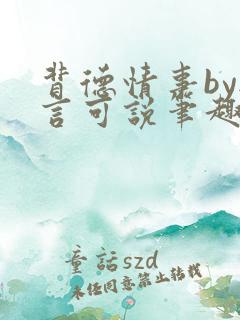 背德情嘉by
言可说笔趣
童话szd
未经同意禁止转载